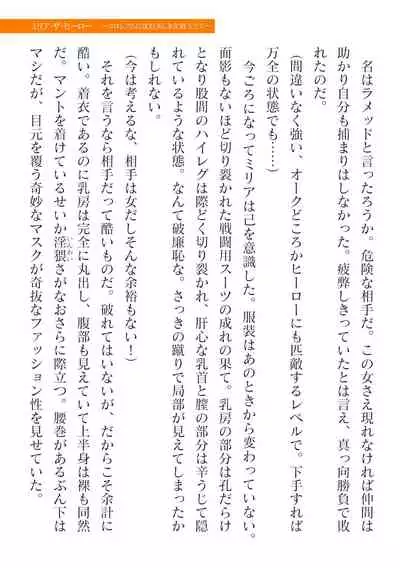 ミリア・ザ・ヒーロー
名はラメッドと言ったろうか。危険な相手だ。この女さえ現れなければ仲間は
助かり自分も捕まりはしなかった。疲弊しきっていたとは言え、真っ向勝負で敗
れたのだ。
（間違いなく強い、オークどころかヒーローにも匹敵するレベルで。下手すれば
万全の状態でも……）
今ごろになってミリアは己を意識した。服装はあのときから変わっていない。
面影もないほど切り裂かれた戦闘用スーツの成れの果て。乳房の部分は孔だらけ
となり股間のハイレグは際どく切り裂かれ、肝心な乳首と膣の部分は辛うじて隠
れているような状態。なんて破廉恥な。さっきの蹴りで局部が見えてしまったか
もしれない。
（今は考えるな、相手は女だしそんな余裕もない！）
それを言うなら相手だって酷いものだ。破れてはいないが、だからこそ余計に
酷い。着衣であるのに乳房は完全に丸出し、腹部も見えていて上半身は裸も同然
だ。マントを着けているせいか淫猥さがなおさらに際立つ。腰巻があるぶん下は
マシだが、目元を覆う奇妙なマスクが奇抜なファッション性を見せていた。